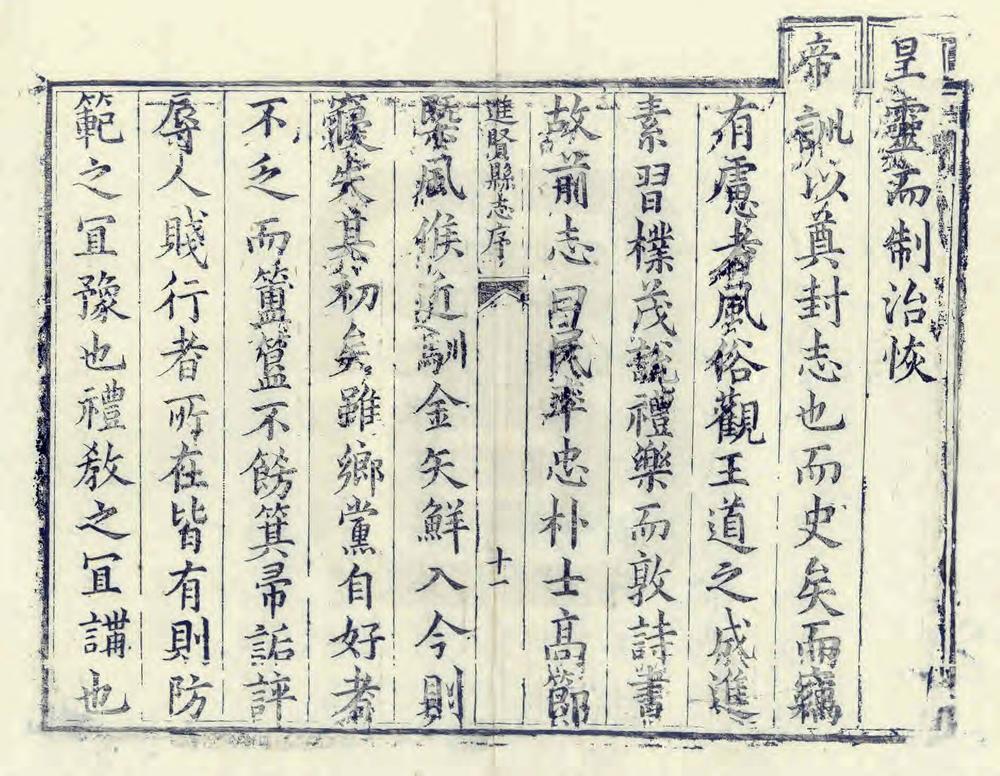 皇靈而制治恢
帝訓以奠封志也而史矣而竊
有慮者風俗觀王道之成進
素習樸茂說禮樂而敦詩書
故前志曰民率忠朴士高節
進賢縣志序
十一
槩風候近馴金矢鮮入今則
寖失其初矣雖鄉黨自好者
不乏而簠簋不飭箕帚詬誶
辱人賤行者所在皆有則防
範之宜豫也禮教之宜講也